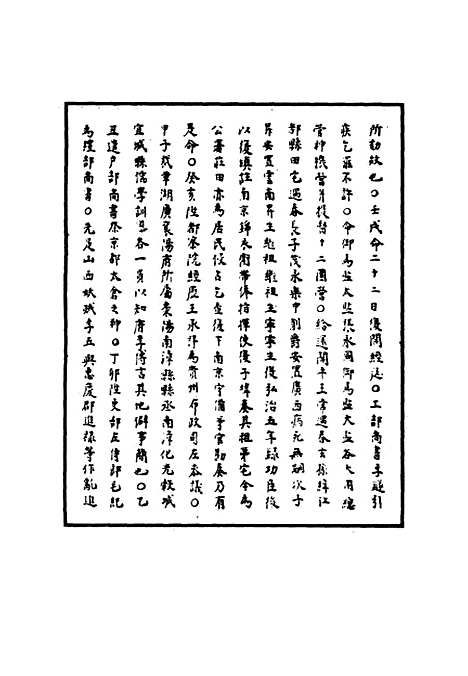 所劾故也○壬戌命二十二日復開經筵○工部尚書李鐩引
疾乞罷不許○命御馬監太監張永同御馬監太監谷大用總
管神機營并提督十二團營○給還開平王常遇春玄孫絳江
都縣田宅遇春長子茂永樂中削爵安置廣西病死無嗣次子
昇安置雲南昇生繼祖繼祖生寧寧生復弘治五年錄功臣後
以復填註南京錦衣衛帶俸指揮使復子 奏其祖第宅今為
公署莊田亦為居民侵占乞查復下南京守備等官勘奏乃有
是命○癸亥陞都察院經歷王承 為貴州布政司左參議○
甲子裁革湖廣襄陽府所屬棗陽南漳縣縣丞南漳化光榖城
宜城縣儒學訓導各一員以知府李 言其地僻事簡也○乙
丑遣戶部尚書祭京都太倉之神○丁卯陞吏部左侍郎毛紀
為禮部尚書○先是山西 李五與惠慶郡進祿等作亂